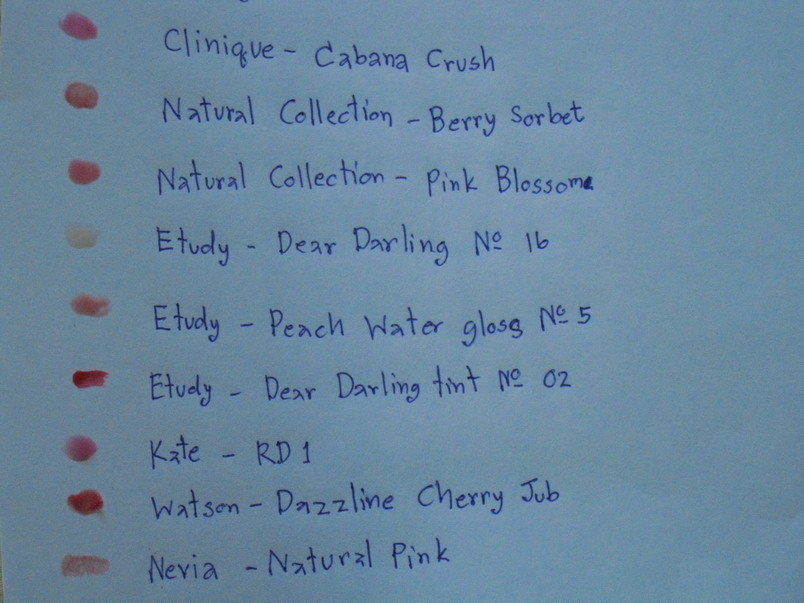 Clinique - Cabana Crush
Natural Collection - Berry Sorbet
Natural Collection - Pink Blossome
Etudy - Dear Darling Nº 16
Etudy - Peach Water gloss Nº 5
Etudy - Dear Darling tint Nº 02
Kate - RD 1
Watson - Dazzline Cherry Jub
Nevia - Natural Pink